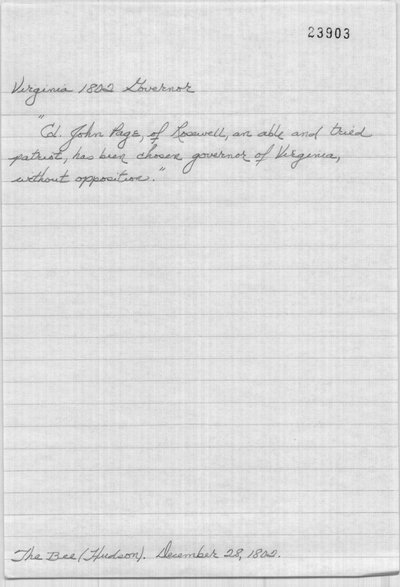 23903
Virginia 1802 Governor
"Col. John Page, of Rosewell, an able and tried
patriot, has been chosen governor of Virginia,
without opposition."
The Bee (Hudson). December 28, 1802.